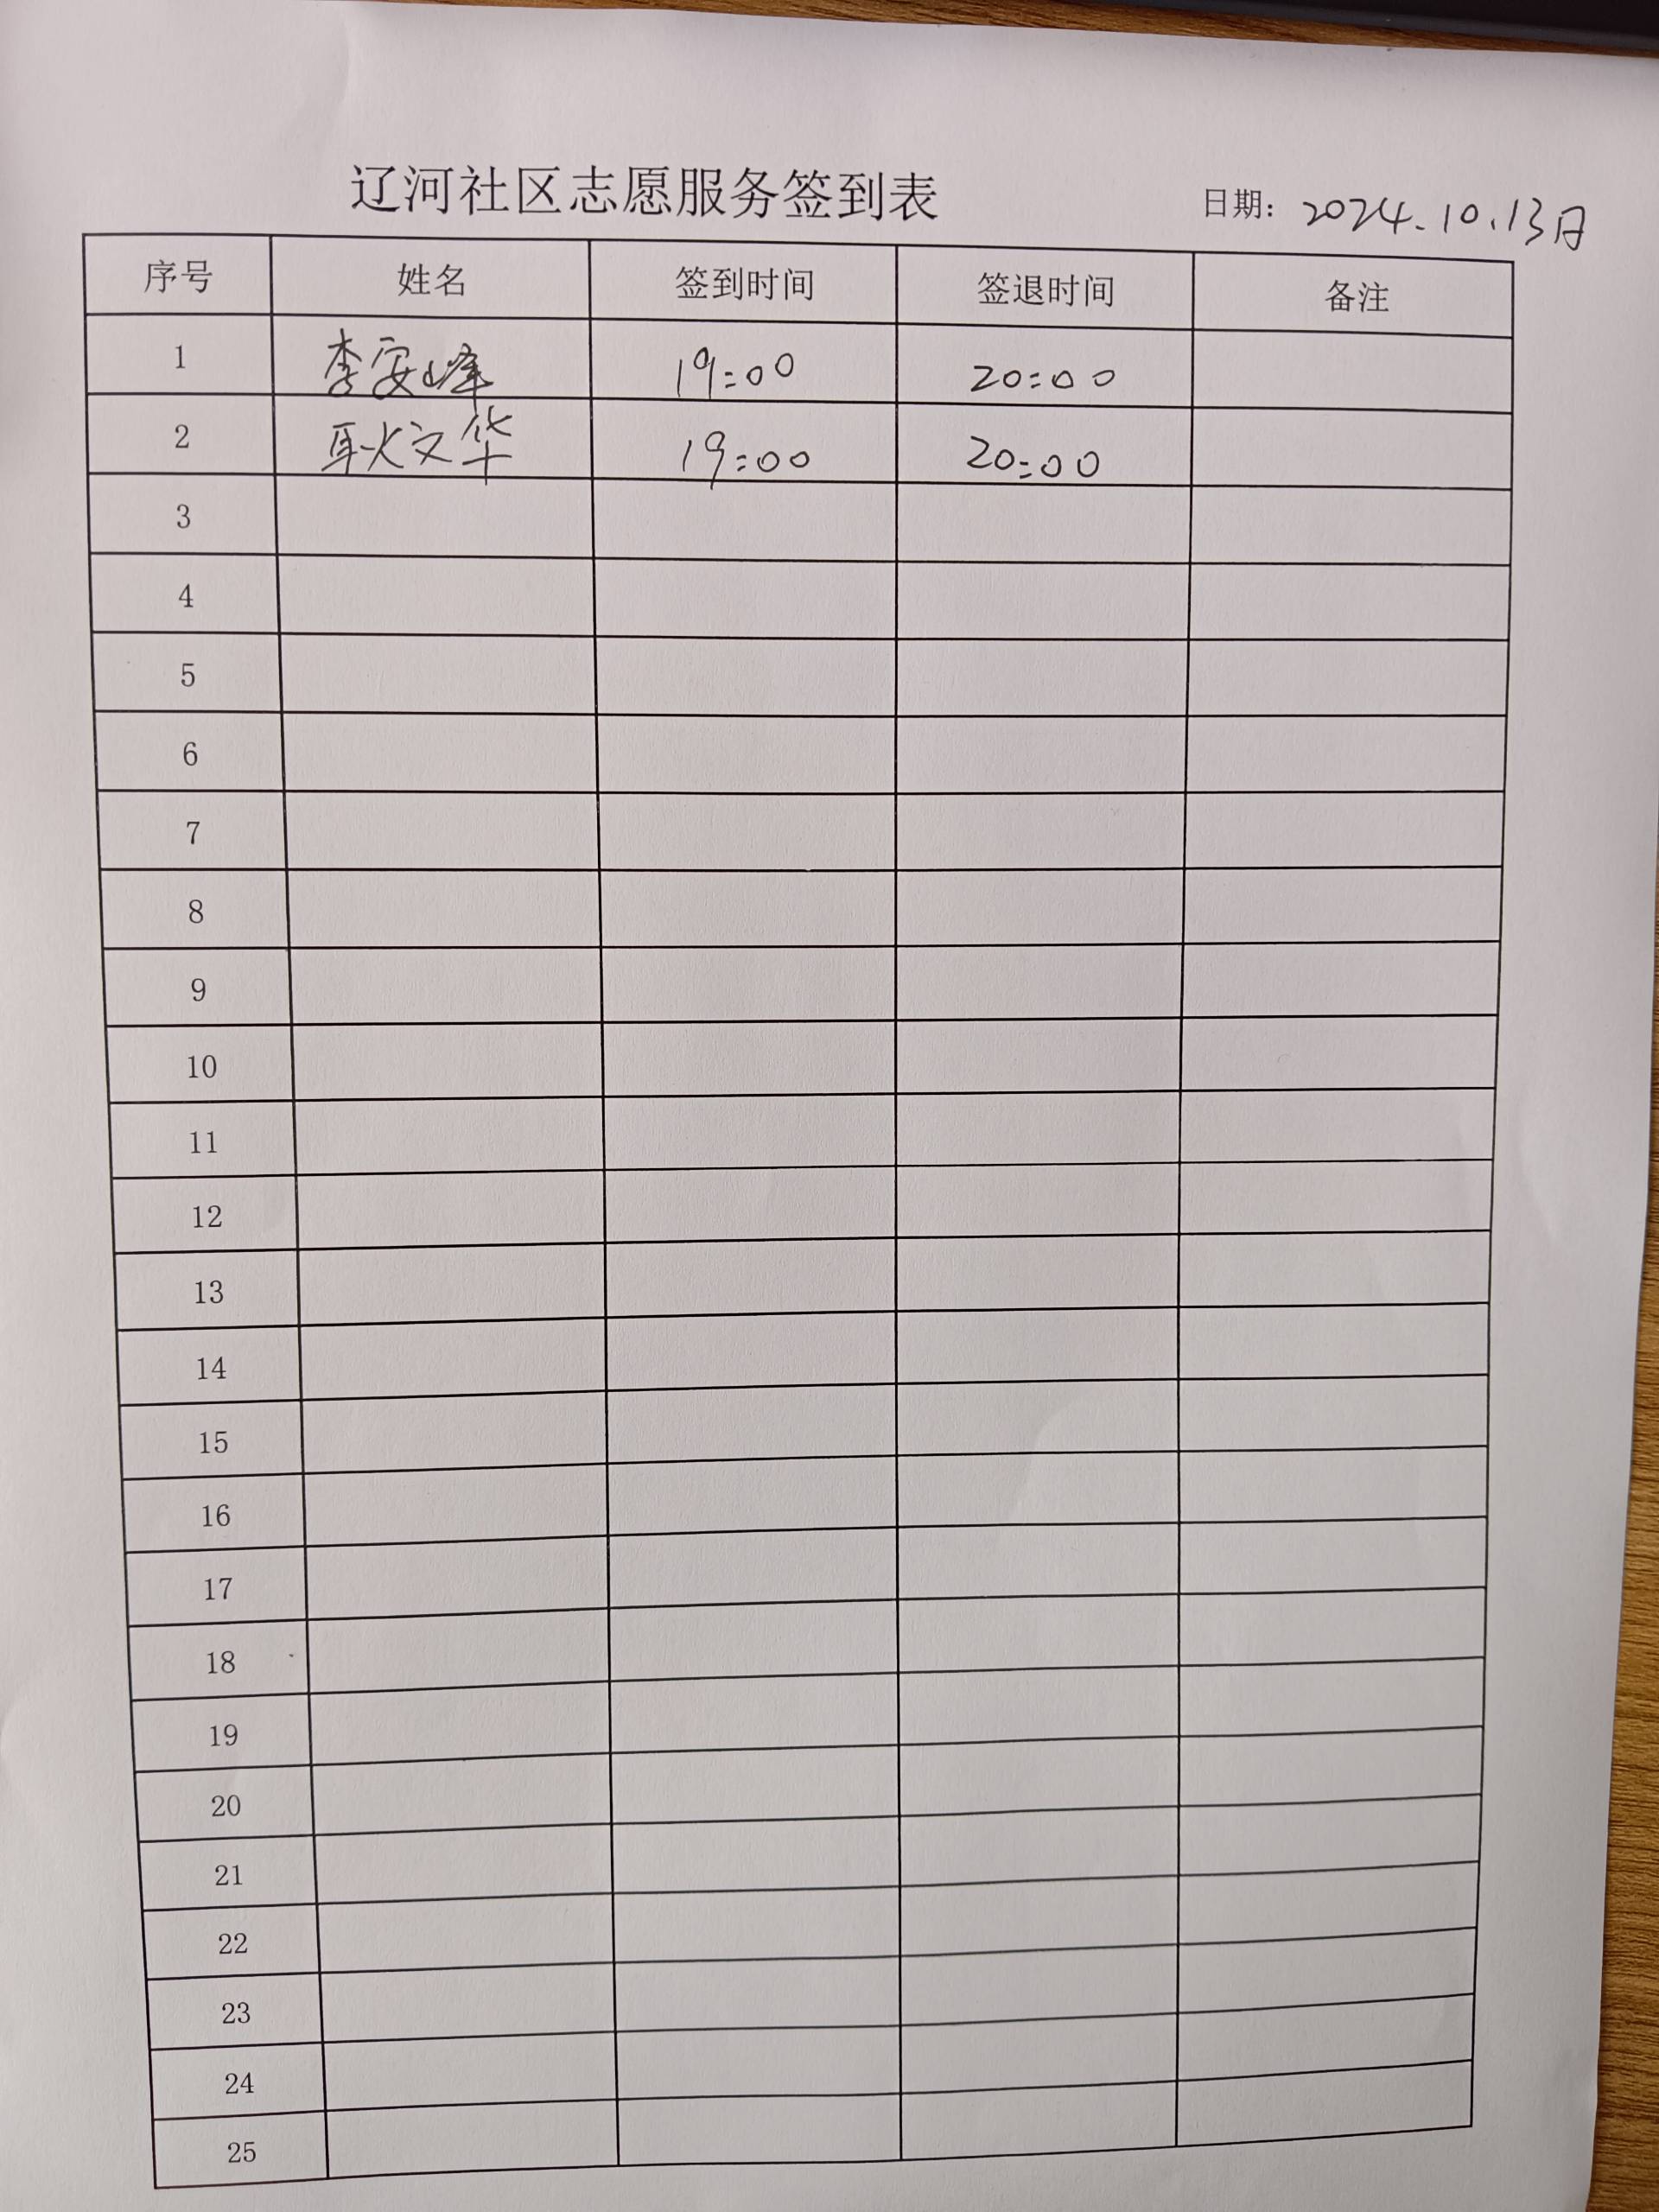 辽河社区志愿服务签到表 日期: 2024.10.13日
序号 姓名 签到时间 签退时间 备注
1 李安峰 19:00 20:00
2 耿文华 19:00 20:00
3
4
5
6
7
8
9
10
11
12
13
14
15
16
17
18
19
20
21
22
23
24
25